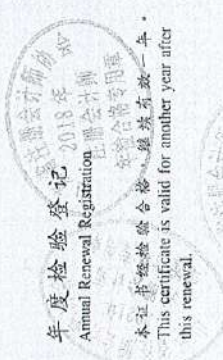 年度检验登记
Annual Renewal Registration
本证书经检验合格，继续有效一年。
This certificate is valid for another year after
this renewal.
2018年
注册会计师
年检合格专用章